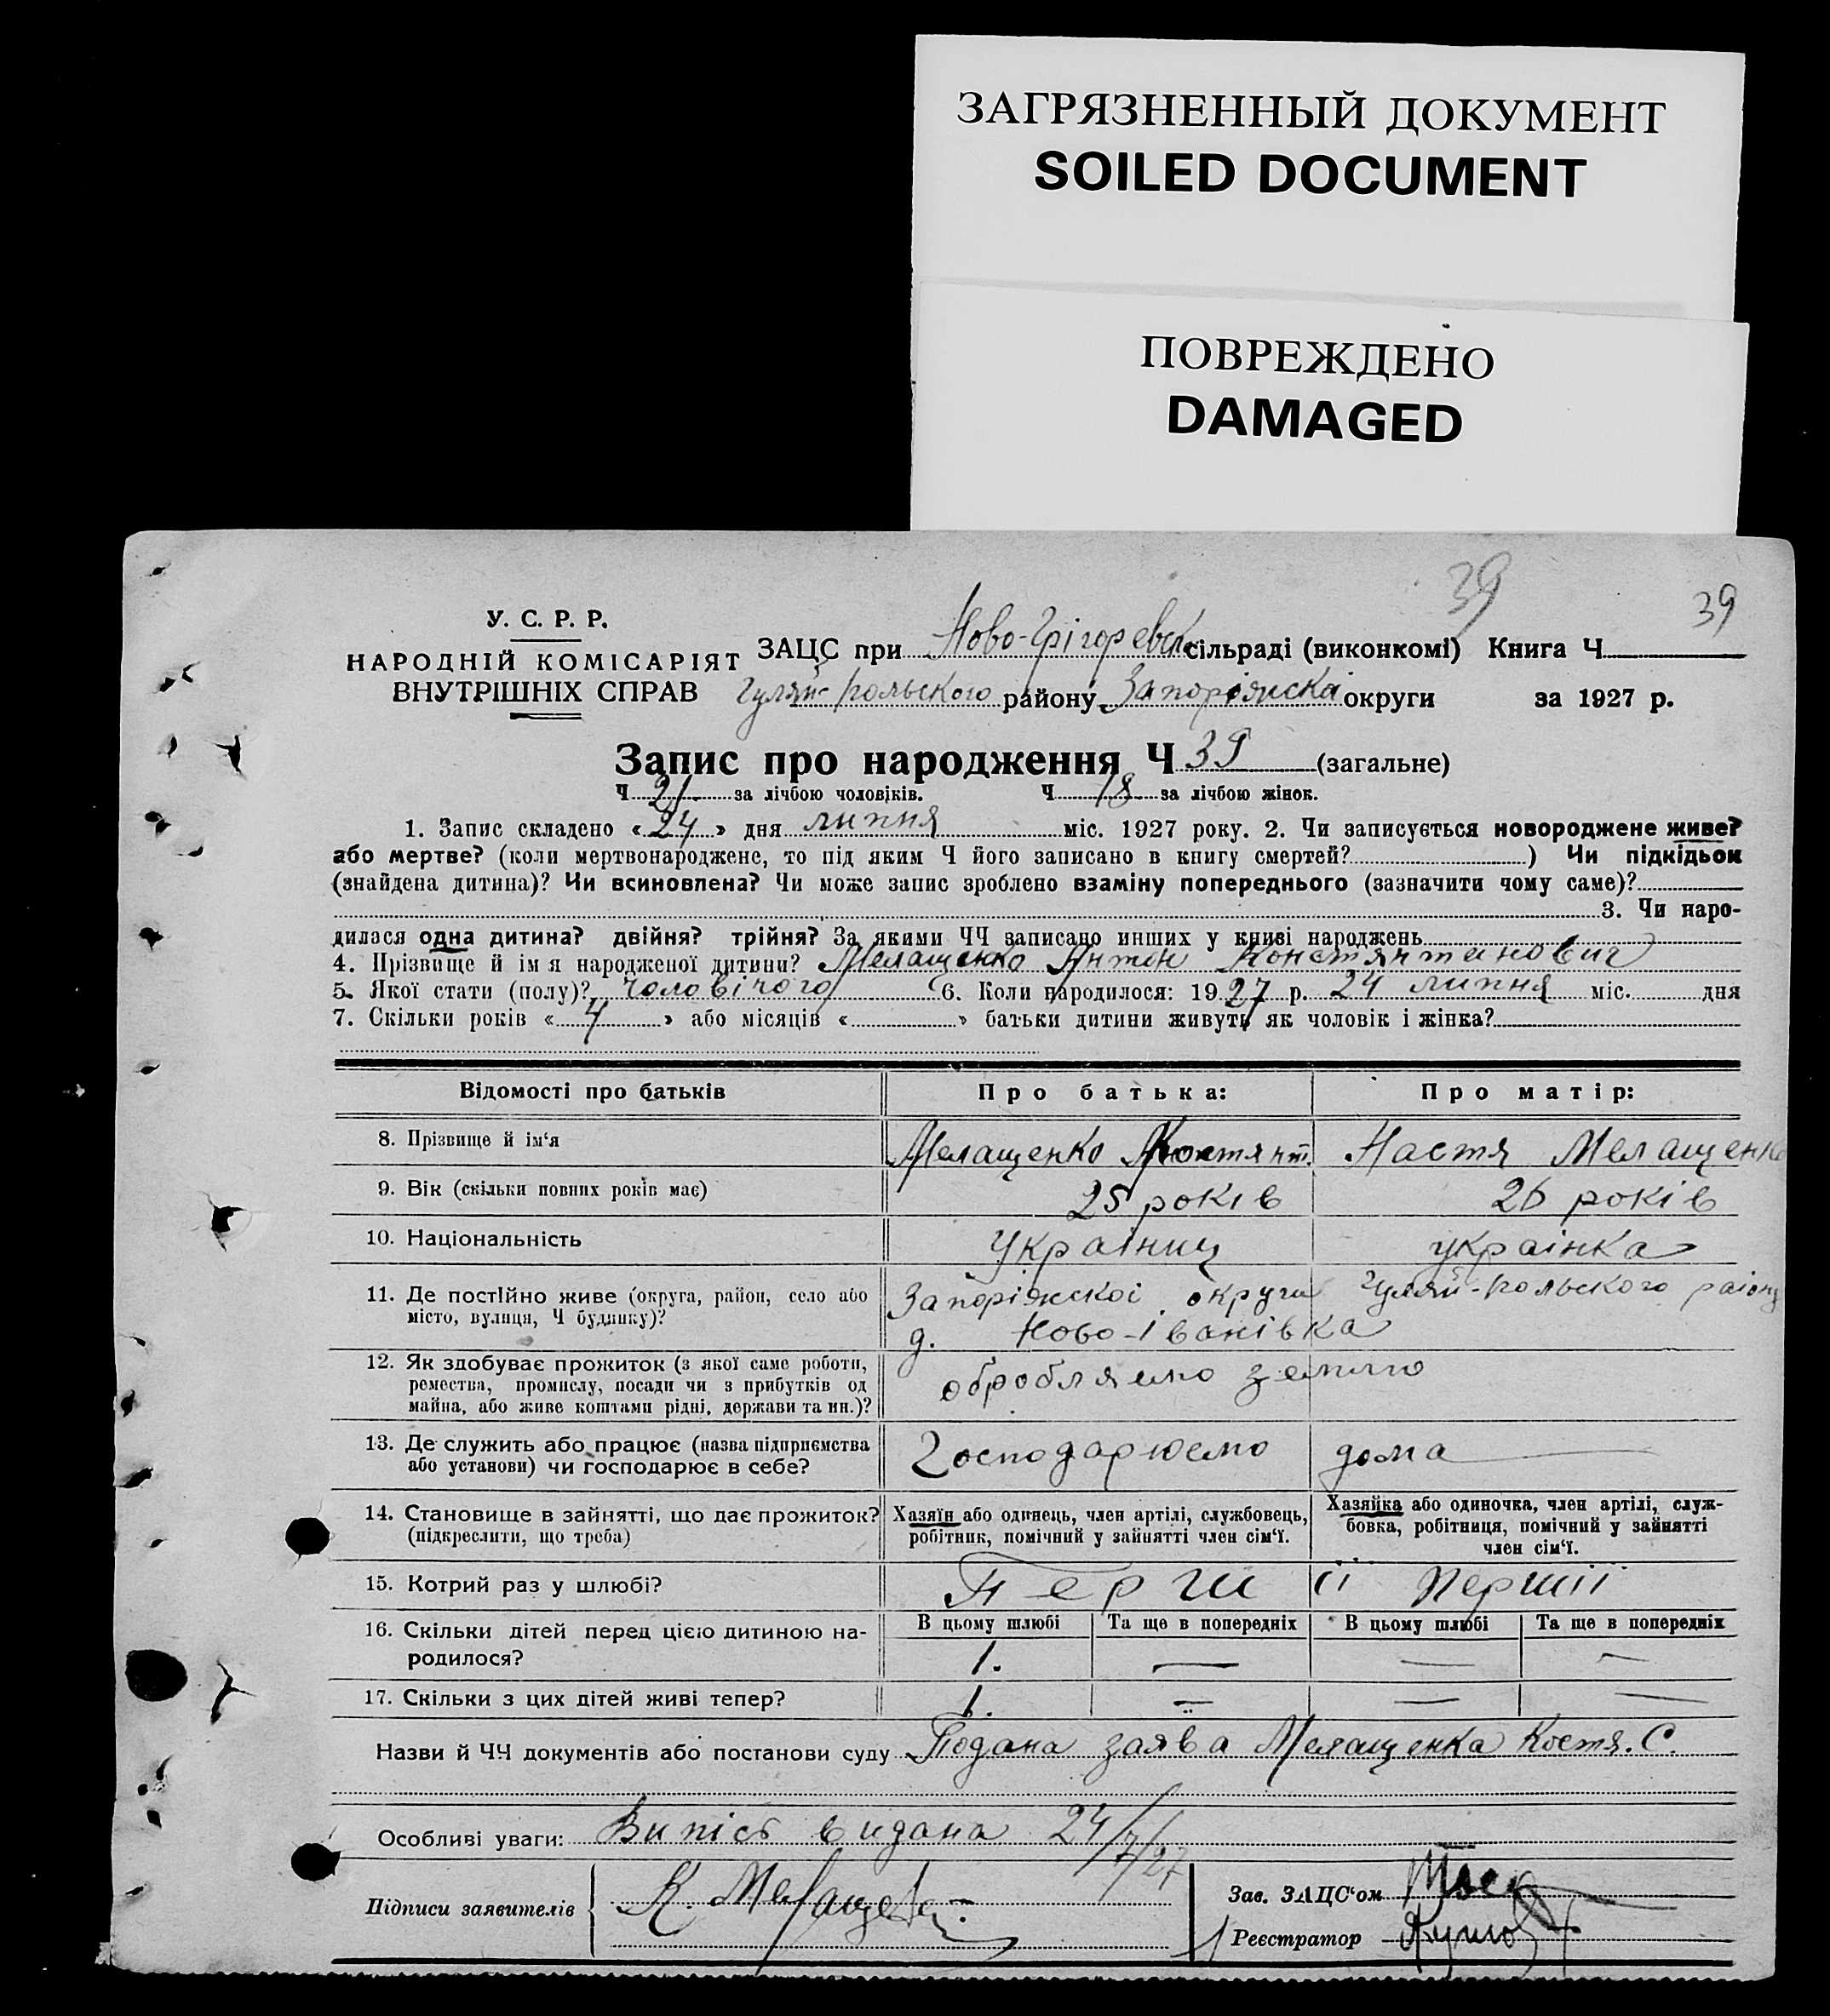 ЗАГРЯЗНЕННЫЙ ДОКУМЕНТ
SOILED DOCUMENT
ПОВРЕЖДЕНО
DAMAGED
39
39
У. С. Р. Р.
НАРОДНІЙ КОМІСАРІЯТ
ВНУТРІШНІХ СПРАВ
ЗАЦС при Ново-Грігоревск сільраді (виконкомі) Книга Ч
Гуляй-Польского району Запоріжскої округи за 1927 р.
Запис про народження Ч 39 (загальне)
Ч 21 за лічбою чоловіків. Ч 18 за лічбою жінок.
1. Запис складено «24» дня липня міс. 1927 року. 2. Чи записується новороджене живе?
або мертве? (коли мертвонароджене, то під яким Ч його записано в книгу смертей? ) Чи підкідьок
(знайдена дитина)? Чи всиновлена? Чи може запис зроблено взаміну попереднього (зазначити чому саме)?
3. Чи наро-
дилася одна дитина? двійня? трійня? За якими ЧЧ записано инших у книзі народжень
4. Прізвище й ім я народженої дитини? Мелащенко Антон Константинович
5. Якої стати (полу)? Чоловічого 6. Коли народилося: 1927 р. 24 липня міс. дня
7. Скільки років «4» або місяців « » батьки дитини живуть як чоловік і жінка?
Відомості про батьків Про батька: Про матір:
8. Прізвище й ім‘я Мелащенко Костянт. Настя Мелащенко
9. Вік (скільки повних років має) 25 років 26 років
10. Національність Україниц українка
11. Де постійно живе (округа, район, село або
місто, вулиця, Ч будинку)?
Запоріжскоі округи Гуляй-Польского раіону
д. Ново-Іванівка
12. Як здобуває прожиток (з якої саме роботи,
ремества, промислу, посади чи з прибутків од
майна, або живе коштами рідні, держави та ин.)?
обробляемо землю
13. Де служить або працює (назва підприємства
або установи) чи господарює в себе?
Господарюемо дома
14. Становище в зайнятті, що дає прожиток?
(підкреслити, що треба)
Хазяїн або одинець, член артілі, службовець,
робітник, помічний у зайнятті член сім‘ї.
Хазяйка або одиночка, член артілі, служ-
бовка, робітниця, помічний у зайнятті
член сім‘ї.
15. Котрий раз у шлюбі? Перший Першії
16. Скільки дітей перед цією дитиною на-
родилося?
В цьому шлюбі Та ще в попередніх В цьому шлюбі Та ще в попередніх
1. — — —
17. Скільки з цих дітей живі тепер? 1. — — —
Назви й ЧЧ документів або постанови суду Подана заява Мелащенка Костя. С.
Особливі уваги: Випісь видана 24/7/27
Підписи заявителів К. Мелаще
Зав. ЗАЦС‘ом
Реєстратор